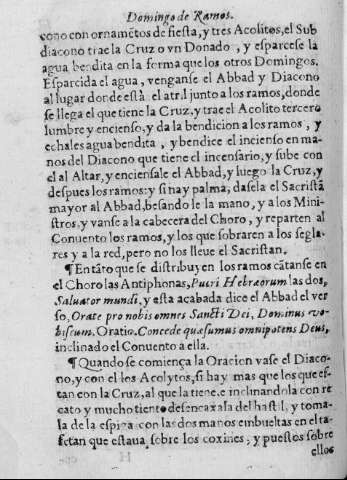 Domingo de Ramos.
cono con ornamẽtos de fiesta, y tres Acolitos, el Sub
diacono trae la Cruz o vn Donado, y esparcese la
agua bendita en la forma que los otros Domingos.
Esparcida el agua, venganse el Abbad y Diacono
al lugar donde està el atril junto a los ramos, donde
se llega el que tiene la Cruz, y trae el Acolito tercero
lumbre y encienso, y da la bendicion a los ramos, y
echales agua bendita, y bendice el incienso en ma-
nos del Diacono que tiene el incensario, y sube con
el al Altar, y enciensale el Abbad, y luego la Cruz, y
despues los ramos: y si hay palma, dasela el Sacristã
mayor al Abbad, besando le la mano, y a los Mini-
stros, y vanse a la cabecera del Choro, y reparten al
Conuento los ramos, y los que sobraren a los segla-
res y a la red, pero no los lleue el Sacristan.
¶ En tãto que se distribuyen los ramos cãtanse en
el Choro las Antiphonas, Pueri Hebræorum las dos,
Saluator mundi, y esta acabada dice el Abbad el ver
so, Orate pro nobis omnes Sancti Dei, Dominus vo-
biscum. Oratio. Concede quæsumus omnipotens Deus,
inclinado el Conuento a ella.
¶ Quando se comiença la Oracion vase el Diaco-
no, y con el los Acolytos, si hay mas que los que es-
tan con la Cruz, al que la tiene, e inclinandola con re
cato y mucho tiento desencaxala del hastil, y toma-
la de la espiga con las dos manos embueltas en el ta-
fetan que estaua sobre los coxines, y puestos sobre
ellos